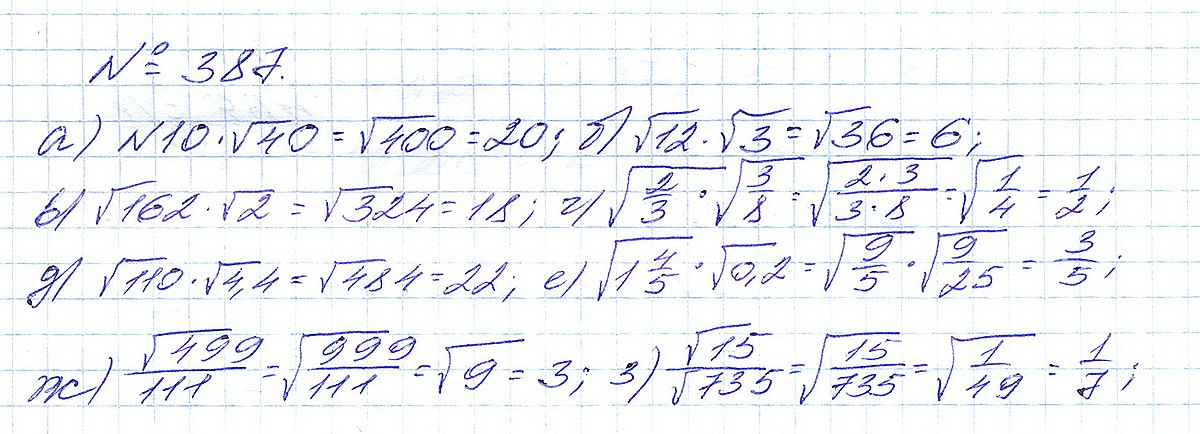 № 387.
а) √10·√40=√400=20; б) √12·√3=√36=6;
в) √162·√2=√324=18; г) √(2/3)·√(3/8)=√((2·3)/(3·8))=√(1/4)=1/2;
д) √110·√4,4=√484=22; е) √(1 4/5)·√0,2=√(9/5)·√(9/25)=3/5;
ж) √499/111=√(999/111)=√9=3; з) √15/√735=√(15/735)=√(1/49)=1/7;